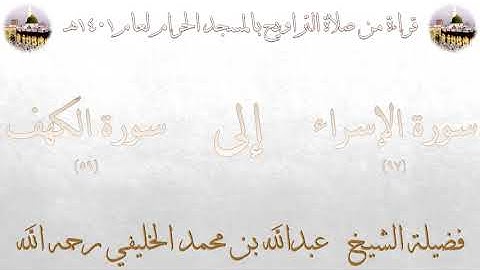 قراءة من صلاة التراويح بالمسجد الحرام لعام ١٤٠١هـ
سورة الإسراء إلى سورة الكهف
(٩٧) (٥٩)
فضيلة الشيخ عبدالله بن محمد الخليفي رحمه الله